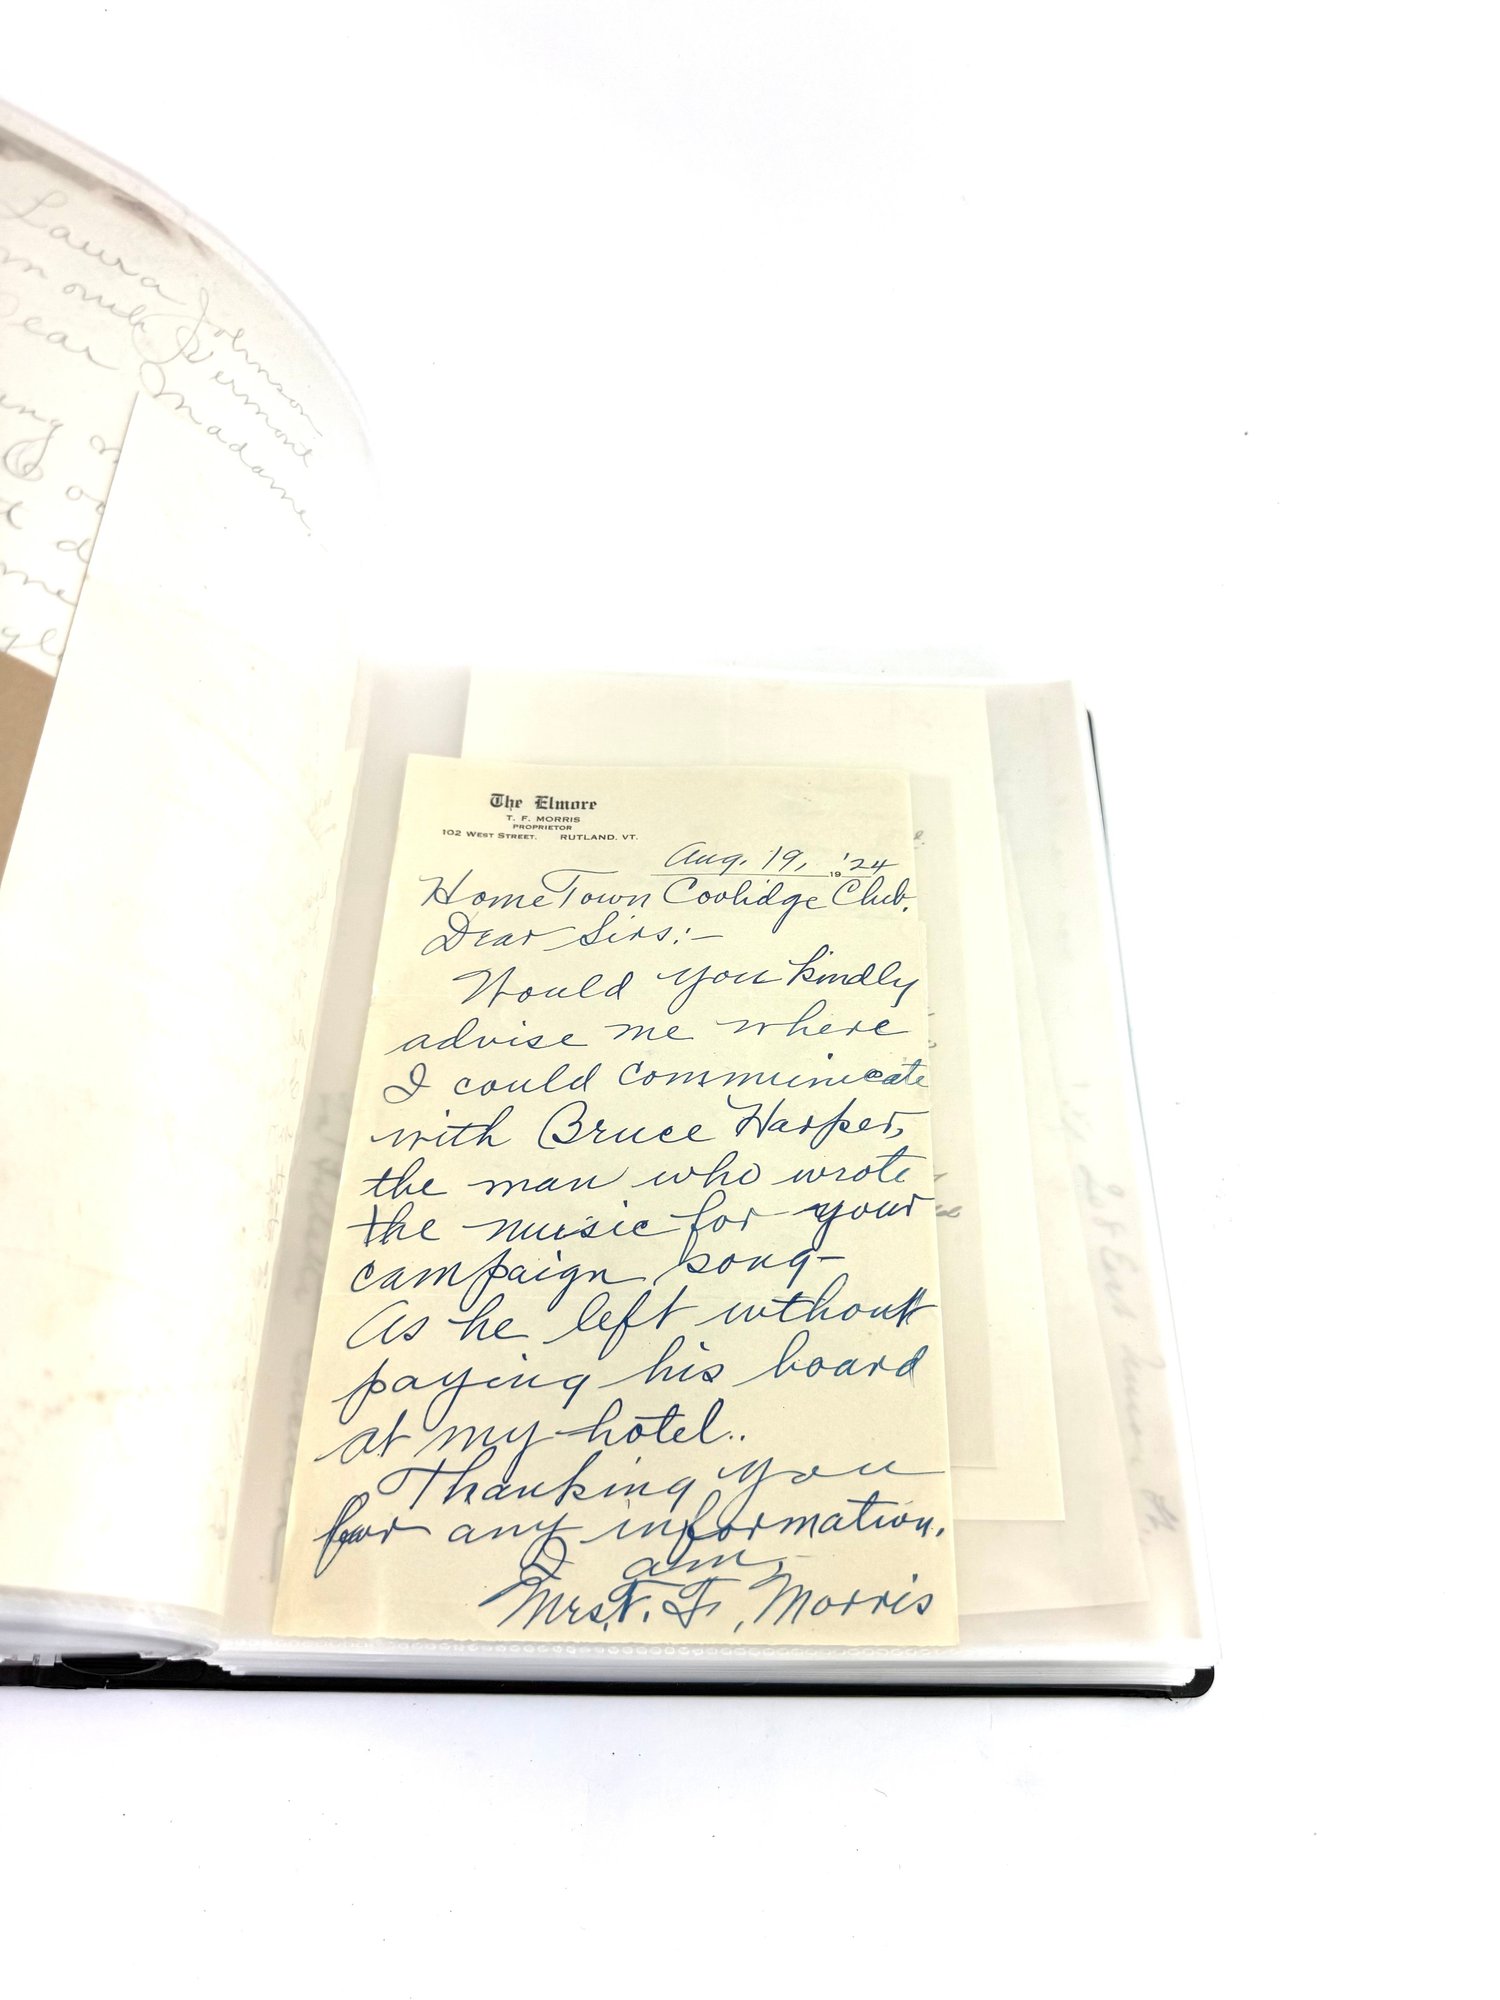 Laura Johnson
Vermont
Dear Madame.
The Elmore
T. F. MORRIS
PROPRIETOR
102 WEST STREET. RUTLAND, VT.
Aug. 19, 19'24
Home Town Coolidge Club.
Dear Sirs:-
Would you kindly
advise me where
I could communicate
with Bruce Harper,
the man who wrote
the music for your
campaign song-
As he left without
paying his board
at my hotel..
Thanking you
for any information.
I am,-
Mrs. T. F. Morris